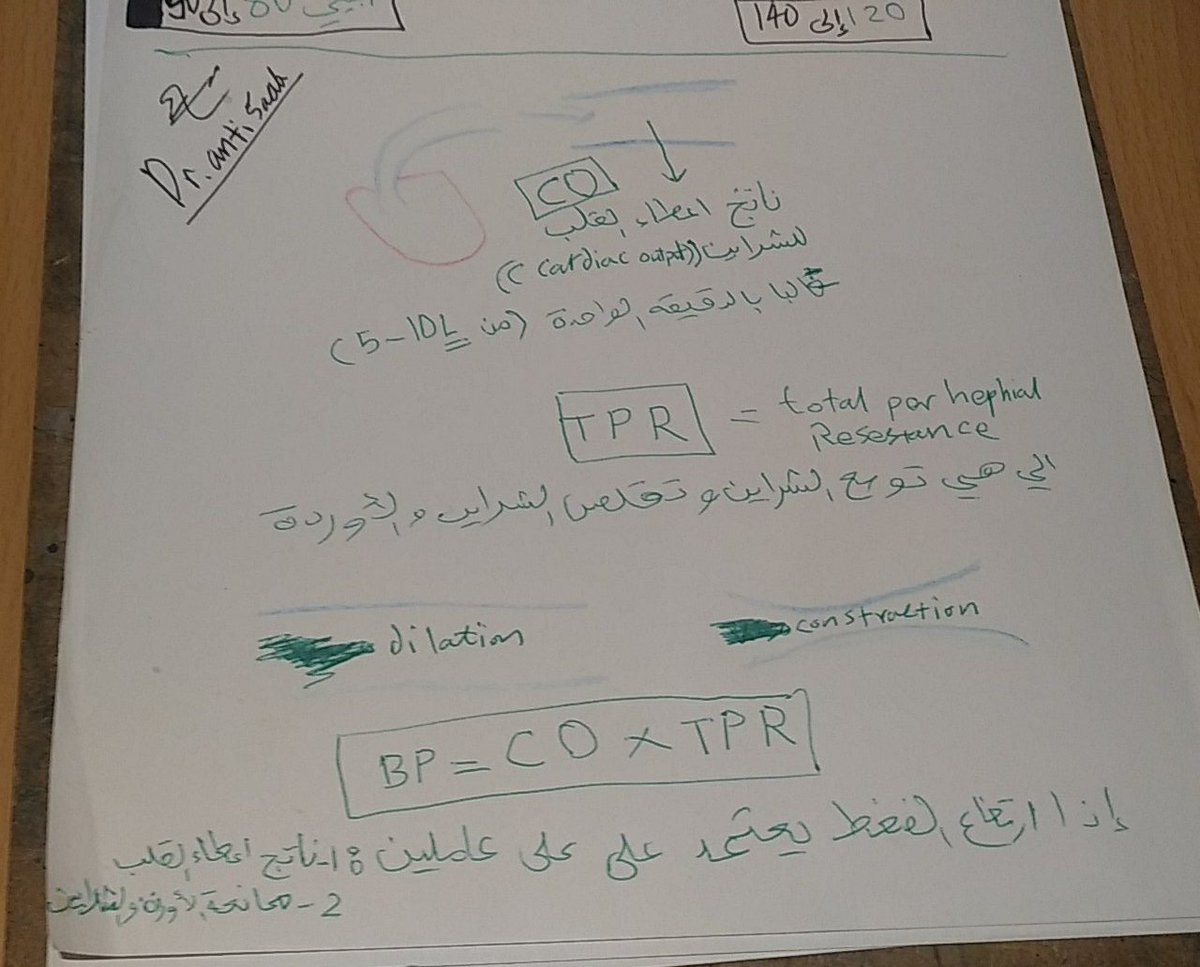 120 إلى 140
Dr. anti Saad
CO
ناتج اعطاء القلب
للشراين ((cardiac output))
غالبا بالدقيقه الواحدة (من 5-10L)
TPR = total parhephial
Resestance
الي هي توسع الشراين وتقلص الشراين والأوردة
dilation
constraction
BP = CO x TPR
إذا ارتفاع الضغط يعتمد على على عاملين: 1- ناتج اعطاء القلب
2- ممانعة الأوردة والشراين